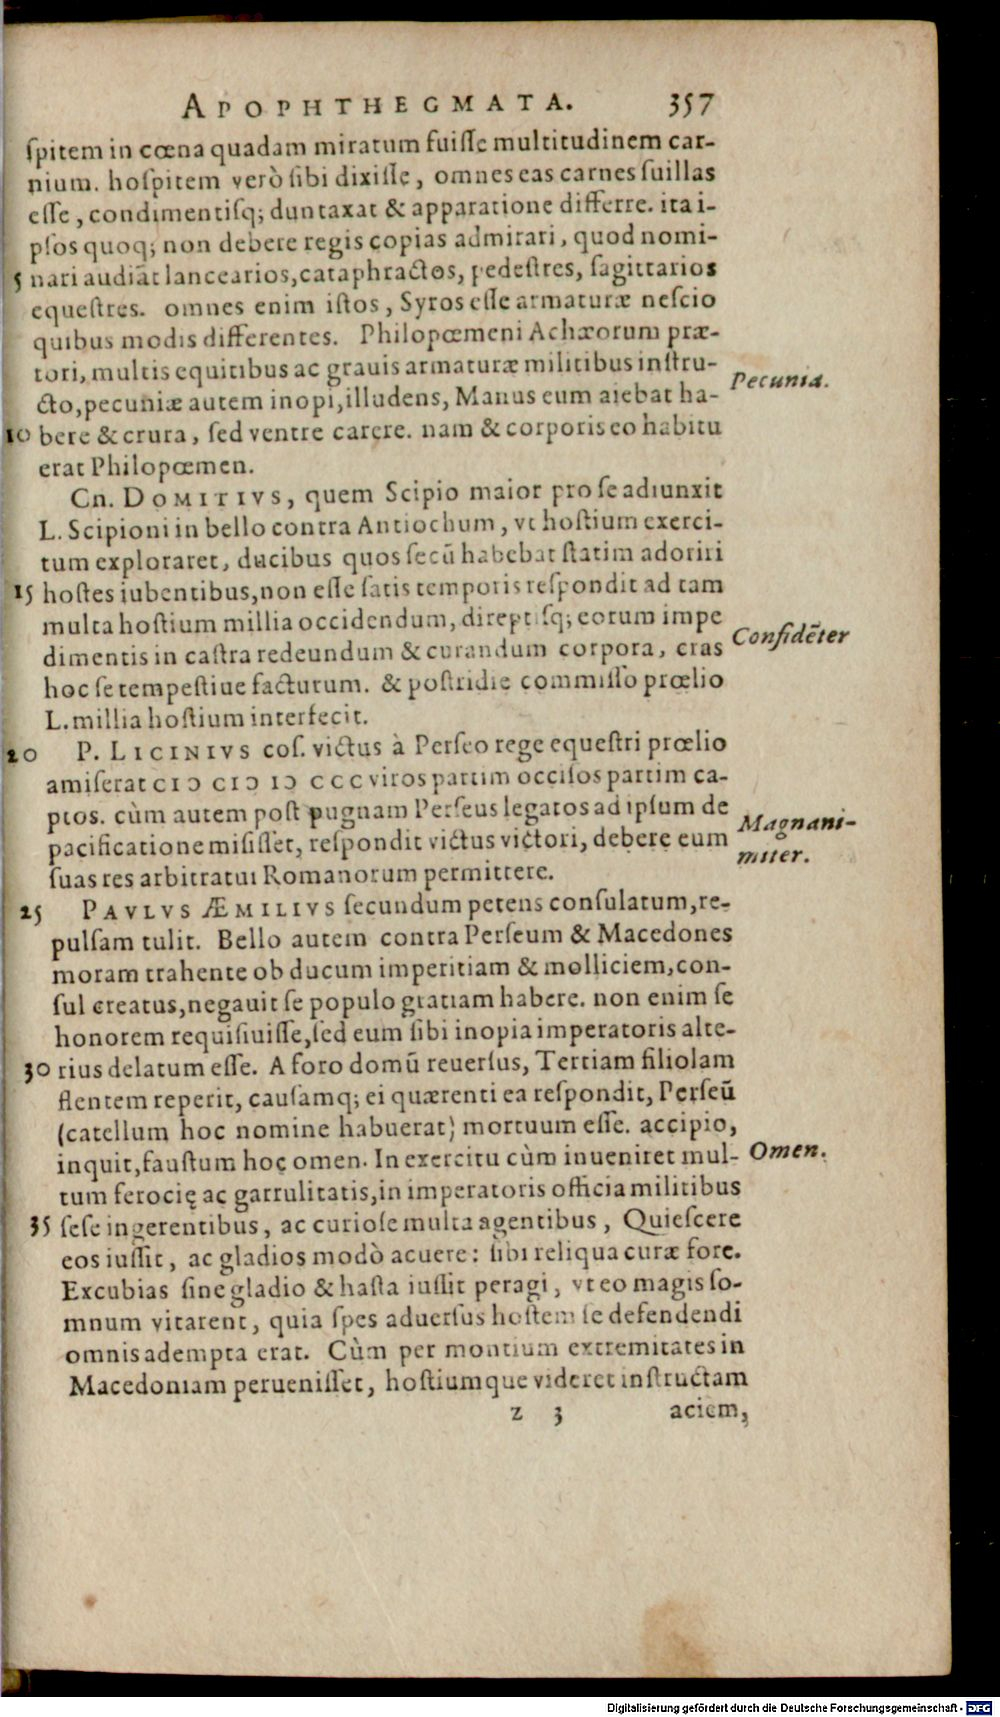 APOPHTHEGMATA. 357
ſpitem in cœna quadam miratum fuiſſe multitudinem car-
nium. hoſpitem verò ſibi dixiſſe, omnes eas carnes ſuillas
eſſe, condimentiſq; duntaxat & apparatione differre. ita i-
pſos quoq; non debere regis copias admirari, quod nomi-
5 nari audiāt lancearios, cataphractos, pedeſtres, ſagittarios
equeſtres. omnes enim iſtos, Syros eſſe armaturæ neſcio
quibus modis differentes. Philopœmeni Achæorum præ-
tori, multis equitibus ac grauis armaturæ militibus inſtru-
Pecunia.
cto, pecuniæ autem inopi, illudens, Manus eum aiebat ha-
10 bere & crura, ſed ventre carere. nam & corporis eo habitu
erat Philopœmen.
Cn. DOMITIVS, quem Scipio maior pro ſe adiunxit
L. Scipioni in bello contra Antiochum, vt hoſtium exerci-
tum exploraret, ducibus quos ſecū habebat ſtatim adoriri
15 hoſtes iubentibus, non eſſe ſatis temporis reſpondit ad tam
multa hoſtium millia occidendum, direptiſq; eorum impe
Confidēter
dimentis in caſtra redeundum & curandum corpora, cras
hoc ſe tempeſtiue facturum. & poſtridie commiſſo prœlio
L. millia hoſtium interfecit.
20 P. LICINIVS coſ. victus à Perſeo rege equeſtri prœlio
amiſerat CIↃ CIↃ IↃ CCC viros partim occiſos partim ca-
ptos. cùm autem poſt pugnam Perſeus legatos ad ipſum de
Magnani-
pacificatione miſiſſet, reſpondit victus victori, debere eum
miter.
ſuas res arbitratui Romanorum permittere.
25 PAVLVS ÆMILIVS ſecundum petens conſulatum, re-
pulſam tulit. Bello autem contra Perſeum & Macedones
moram trahente ob ducum imperitiam & molliciem, con-
ſul creatus, negauit ſe populo gratiam habere. non enim ſe
honorem requiſiuiſſe, ſed eum ſibi inopia imperatoris alte-
30 rius delatum eſſe. A foro domū reuerſus, Tertiam filiolam
flentem reperit, cauſamq; ei quærenti ea reſpondit, Perſeū
(catellum hoc nomine habuerat) mortuum eſſe. accipio,
inquit, fauſtum hoc omen. In exercitu cùm inueniret mul-
Omen.
tum ferocię ac garrulitatis, in imperatoris officia militibus
35 ſeſe ingerentibus, ac curioſe multa agentibus, Quieſcere
eos iuſſit, ac gladios modò acuere: ſibi reliqua curæ fore.
Excubias ſine gladio & haſta iuſſit peragi, vt eo magis ſo-
mnum vitarent, quia ſpes aduerſus hoſtem ſe defendendi
omnis adempta erat. Cùm per montium extremitates in
Macedoniam perueniſſet, hoſtiumque videret inſtructam
z 3 aciem,
Digitalisierung gefördert durch die Deutsche Forschungsgemeinschaft - DFG